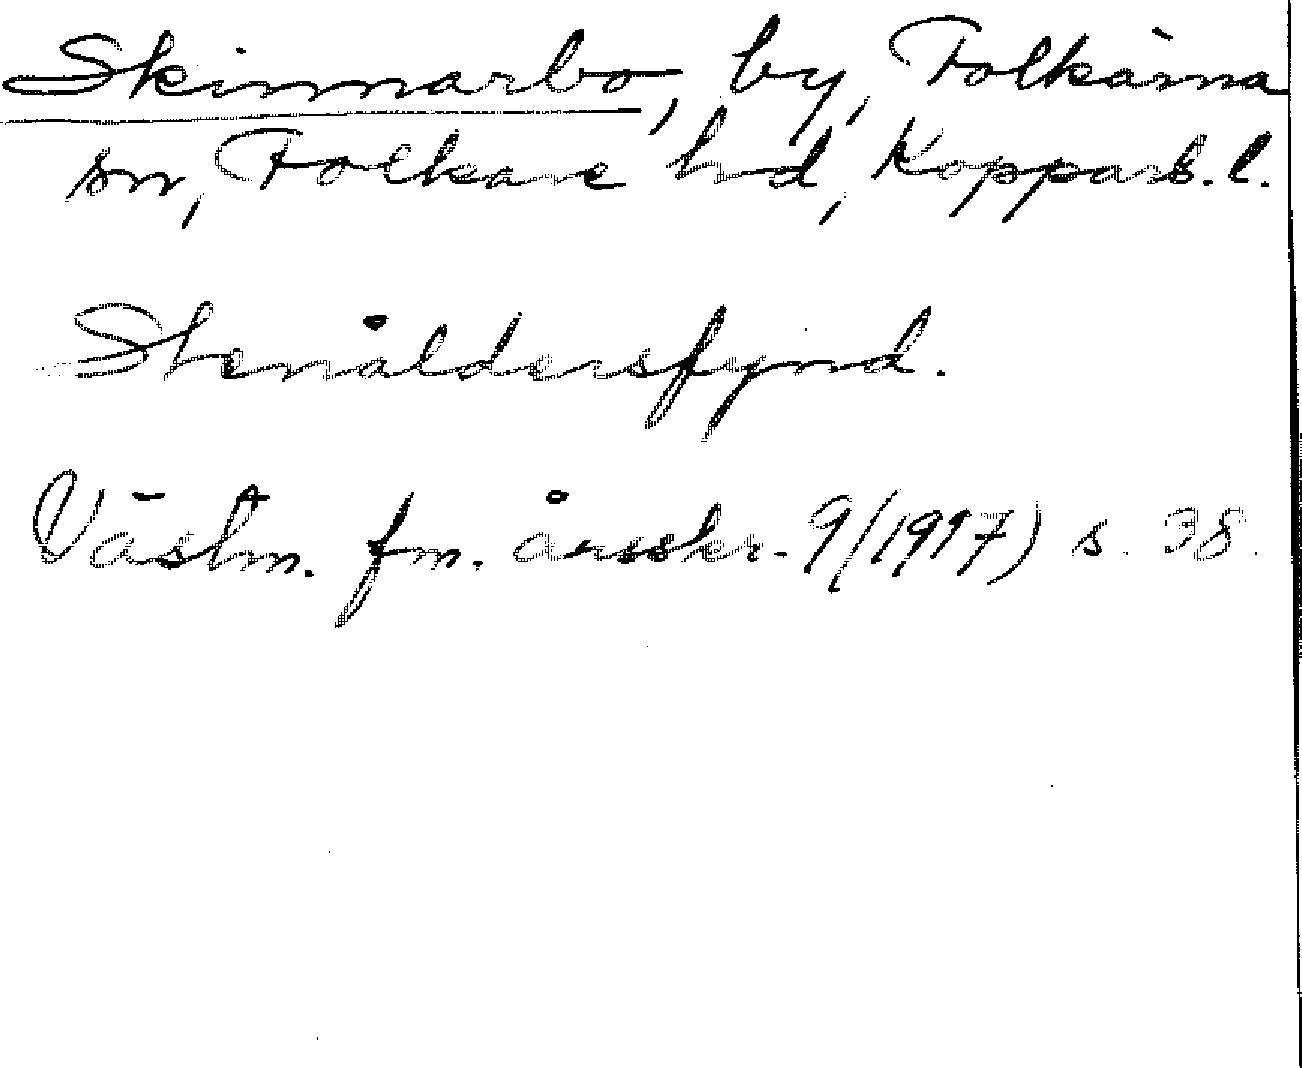 Skinnarbo, by, Folkärna
sn, Folkare hd, Kopparb. l.
Stenåldersfynd.
Västm. fm. årsskr. 9/(1917) s. 38.